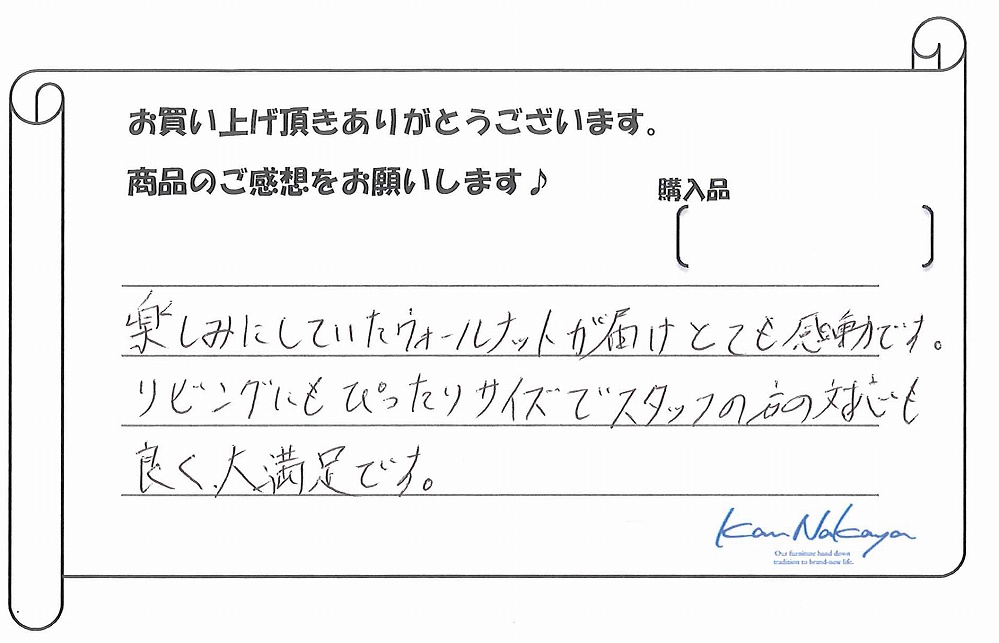 お買い上げ頂きありがとうございます。
商品のご感想をお願いします♪
購入品
楽しみにしていたウォールナットが届けとても感動です。
リビングにもぴったりサイズでスタッフの方の対応も
良く、大満足です。
Kan Nakaya
Our furniture hand down
tradition to brand-new life.